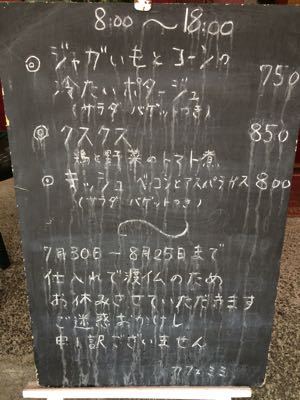 8:00〜18:00
◎ジャガいもとコーンの
冷たいポタージュ 750
(サラダ バゲットつき)
◎クスクス 850
鶏と野菜のトマト煮
◎キッシュ ベーコンとアスパラガス 800
(サラダ バゲットつき)
〜
7月30日―8月25日まで
仕入れで渡仏のため
お休みさせていただきます
ご迷惑おかけし
申し訳ございません
カフェ ミミ